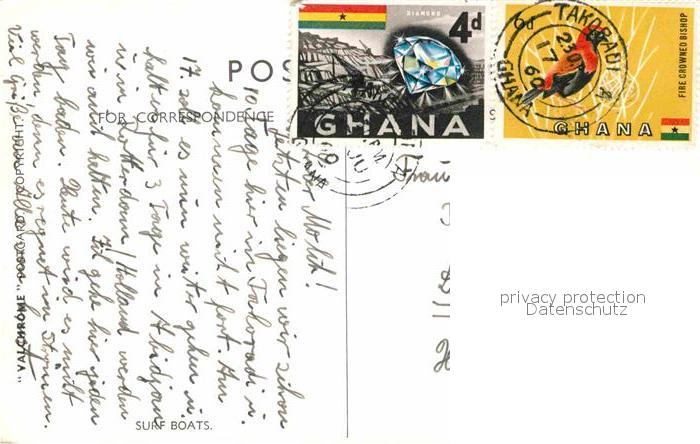 POS
FOR CORRESPONDENCE
DIAMOND
4d
GHANA
6d
FIRE CROWNED BISHOP
GHANA
TAKORADI
23
17
60
GHANA
"VALCHROME" POSTCARD, COPYRIGHT
SURF BOATS.
Jetzten liegen wir schon
10 Tage hier in Takoradi u.
kommen nicht fort. Am
17. soll es nun weiter gehen u.
halten für 3 Tage in Abidjan
u. in Rotterdam/Holland werden
wir auch halten. Ich gehe hier jeden
Tag baden. Heute wird es nicht
werden, denn es regnet in Strömen.
Viele Grüße
Frau
privacy protection
Datenschutz